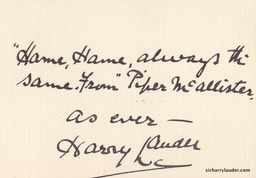 "Hame, Hame, always the
same. From" Piper McAllister.
as ever —
Harry Lauder
sirharrylauder.com